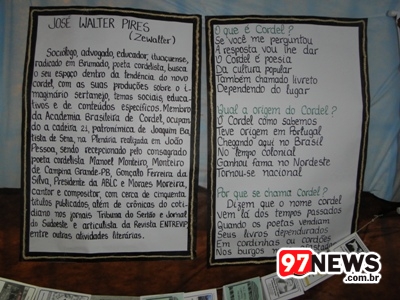 JOSÉ WALTER PIRES
(Zewalter)
Sociólogo, advogado, educador, ituaçuense,
radicado em Brumado, poeta cordelista, busca
o seu espaço dentro da tendência do novo
cordel, com as suas produções sobre o i-
maginário sertanejo, temas sociais, educa-
tivos e de conteúdos específicos. Membro
da Academia Brasileira de Cordel, ocupan-
do a cadeira 21, patronímica de Joaquim Ba-
tista de Sena, na Plenária realizada em João
Pessoa, sendo recepcionado pelo consagrado
poeta cordelista Manoel Monteiro, Monteiro
de Campina Grande-PB, Gonçalo Ferreira da
Silva, Presidente da ABLC e Moraes Moreira,
cantor e compositor, com cerca de cinquenta
títulos publicados, além de crônicas do coti-
diano nos jornais Tribuna do Sertão e Jornal
do Sudoeste e articulista da Revista ENTREVP
entre outras atividades literárias.
O que é Cordel?
Se você me perguntou
A resposta vou lhe dar
O Cordel é poesia
Da cultura popular
Também chamado livreto
Dependendo do lugar
Qual a origem do Cordel?
O Cordel como sabemos
Teve origem em Portugal
Chegando aqui no Brasil
No tempo colonial
Ganhou fama no Nordeste
Tornou-se nacional
Por que se chama Cordel?
Dizem que o nome cordel
Vem lá dos tempos passados
Quando os poetas vendiam
Seus livros dependurados
Em cordinhas ou cordões
Nos burgos
97NEWS
.com.br